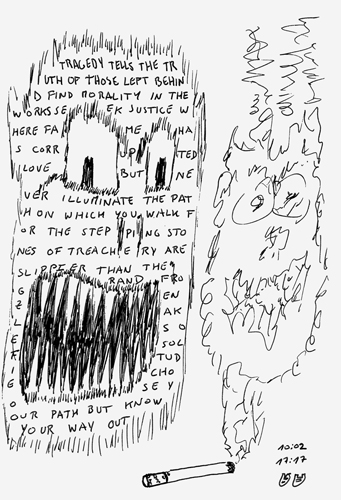 TRAGEDY TELLS THE TR
UTH OF THOSE LEFT BEHIN
D FIND MORALITY IN THE
WORKS SE EK JUSTICE W
HERE FA ME HA
S CORR UP TED
LOVE BUT NE
VER ILLUMINATE THE PAT
H ON WHICH YOU WALK F
OR THE STEP PING STO
NES OF TREACHE RY ARE
SLIPPIER THAN THE
G RAND FRO
Z EN
L AK
E SO
SOL
I TUD
G CHO
O SEY
OUR PATH BUT KNOW
YOUR WAY OUT
10:02
17:17